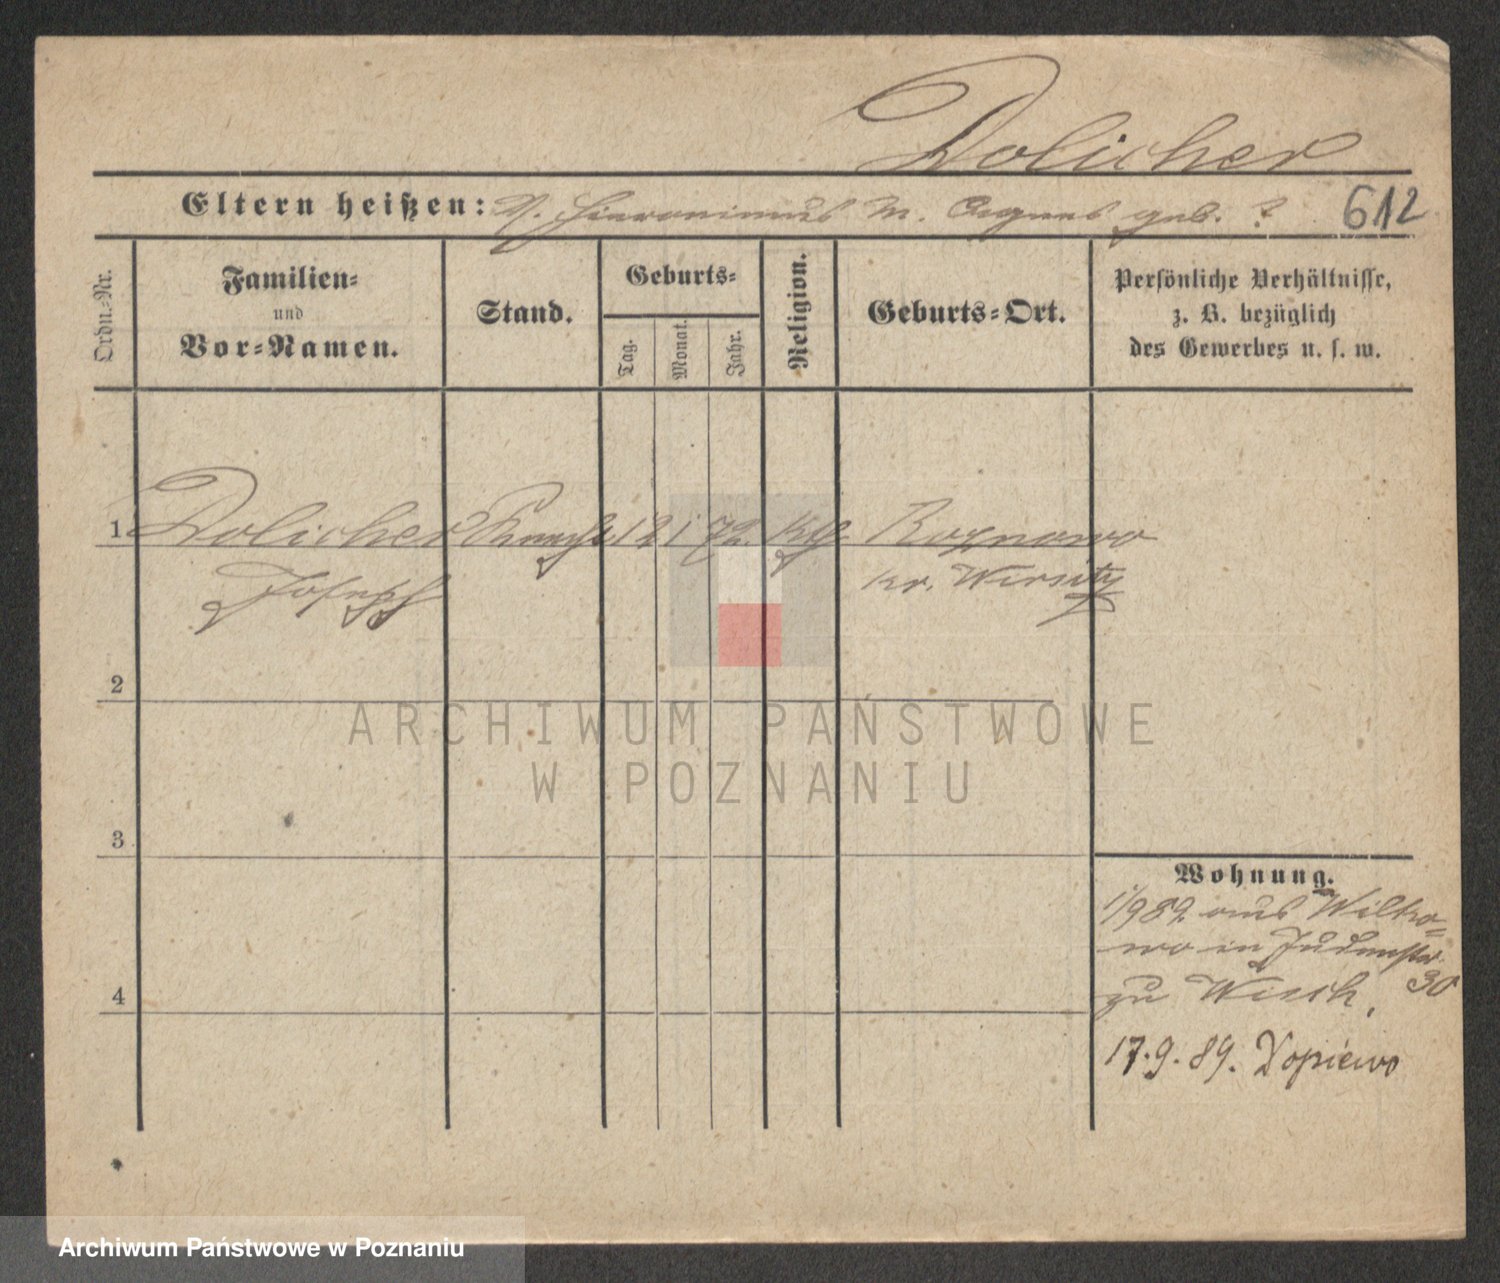 Dolicher
Eltern heißen: V. Hieronimus M. Agnes geb. ?
612
Ordn.-Nr.
Familien-
und
Vor-Namen.
Stand.
Geburts-
Tag.
Monat.
Jahr.
Religion.
Geburts-Ort.
Persönliche Verhältnisse,
z. B. bezüglich
des Gewerbes u. s. w.
1 Dolicher Knecht 12 1 72. kth.
Joseph
kr. Wirsitz
2
ARCHIWUM PAŃSTWOWE
W POZNANIU
3
4
Wohnung.
1/9 89. aus
wo in Judenstr.
zu 30
17.9.89. Dopiewo
Archiwum Państwowe w Poznaniu